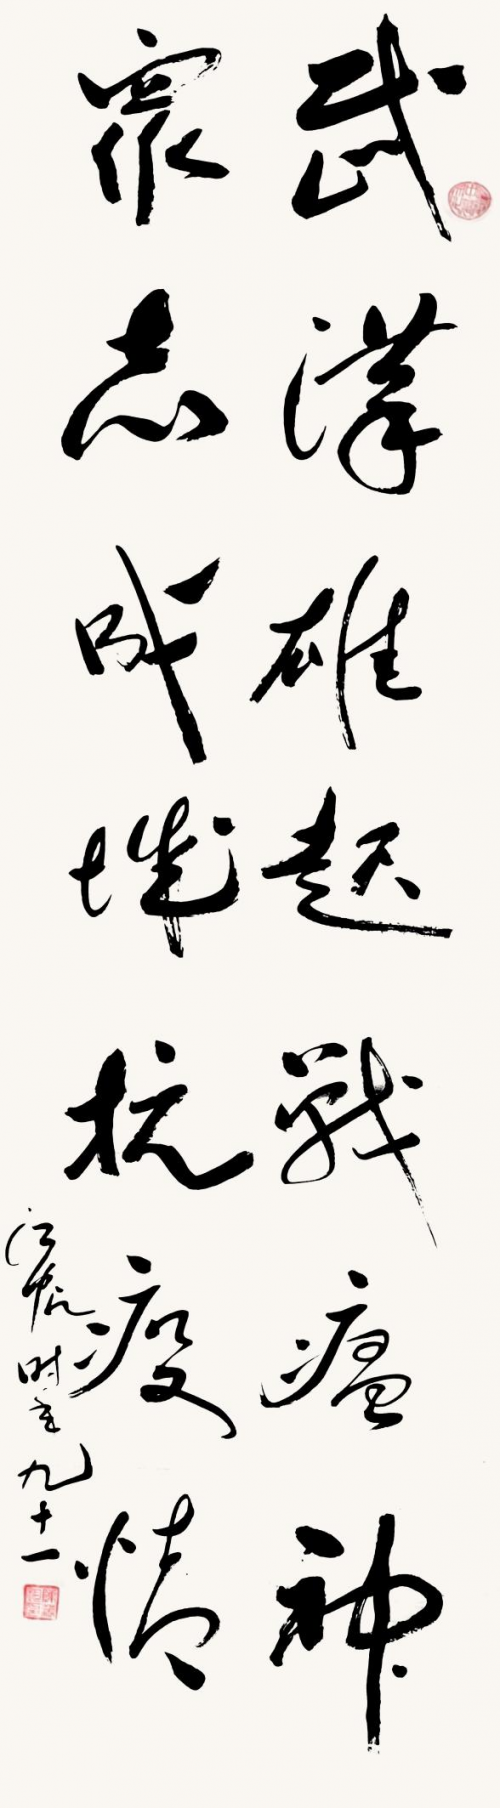 武漢雄起戰瘟神
眾志成城抗疫情
江帆时年九十一